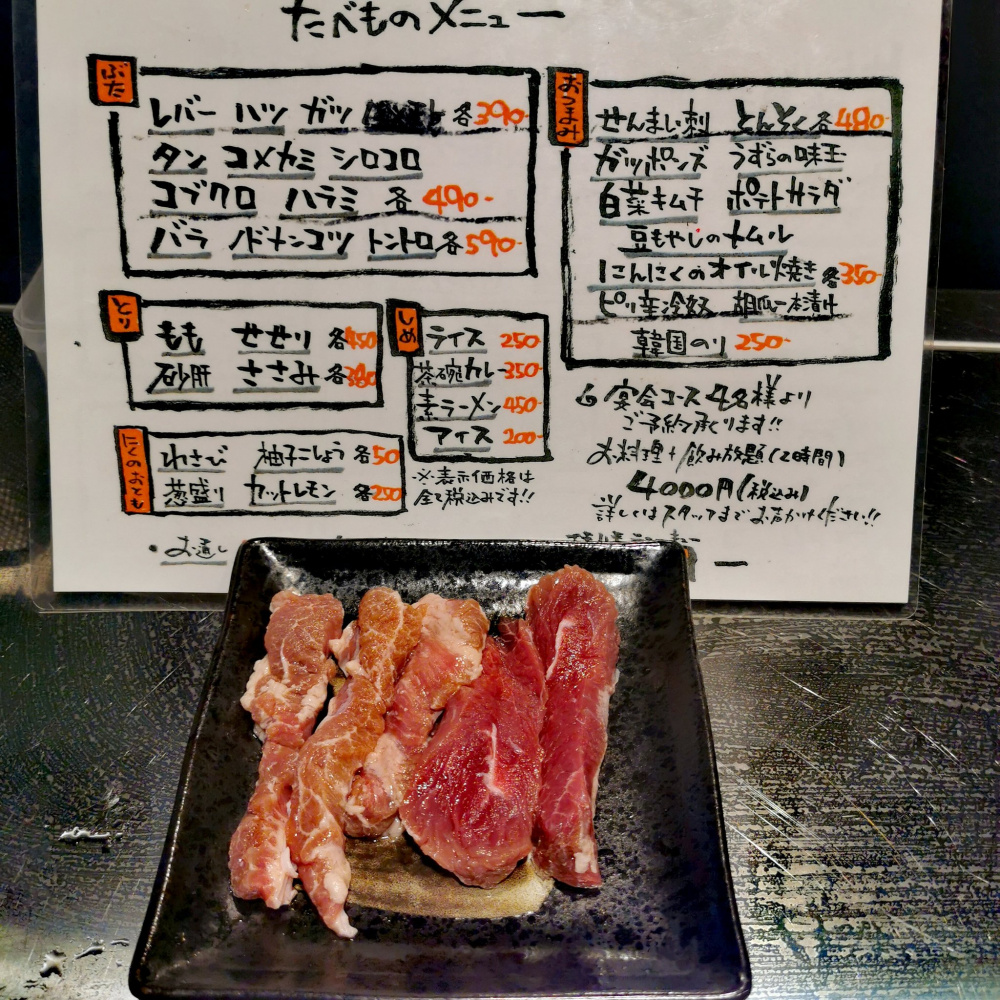 たべものメニュー
ぶた
レバー ハツ ガツ 各390-
タン コメカミ シロコロ
コブクロ ハラミ 各490-
バラ ノドナンコツ トントロ各590-
とり
もも せせり 各450
砂肝 ささみ 各380
にくのおとも
わさび 柚子こしょう 各50
葱盛り カットレモン 各250
しめ
ライス 250-
茶碗カレー350-
素ラーメン450-
アイス 200-
※表示価格は
全て税込みです!!
おつまみ
せんまい刺 とんそく各480-
ガツポンズ うずらの味玉
白菜キムチ ポテトサラダ
豆もやしのナムル
にんにくのオイル焼き各350-
ピリ辛冷奴 胡瓜一本漬け
韓国のり 250-
宴会コース 4名様より
ご予約承ります!!
お料理+飲み放題(2時間)
4000円(税込み)
詳しくはスタッフまでお声がけください!!
・お通し